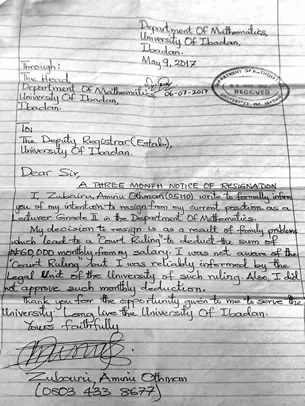 Department Of Mathematics,
University Of Ibadan,
Ibadan.
May 9, 2017
Through:
The Head,
Department Of Mathematics, 06-07-2017
University Of Ibadan,
Ibadan.
DEPARTMENT OF MATHEMATICS
RECEIVED
To:
The Deputy Registrar (Estab),
University Of Ibadan.
Dear Sir,
A THREE MONTH NOTICE OF RESIGNATION
I, Zubairu, Aminu Othman (05110) write to formally inform
you of my intention to resign from my current position as a
Lecturer Grade II in the Department Of Mathematics.
My decision to resign is as a result of family problems
which lead to a "Court Ruling" to deduct the sum of
₦60,000 monthly from my salary. I was not aware of the
"Court Ruling" but I was reliably informed by the
Legal Unit of the University of such ruling. Also, I did
not approve such monthly deduction.
Thank you for the opportunity given to me to serve the
University. Long live the University Of Ibadan.
Yours faithfully
Zubairu, Aminu Othman
(0803 433 8677)